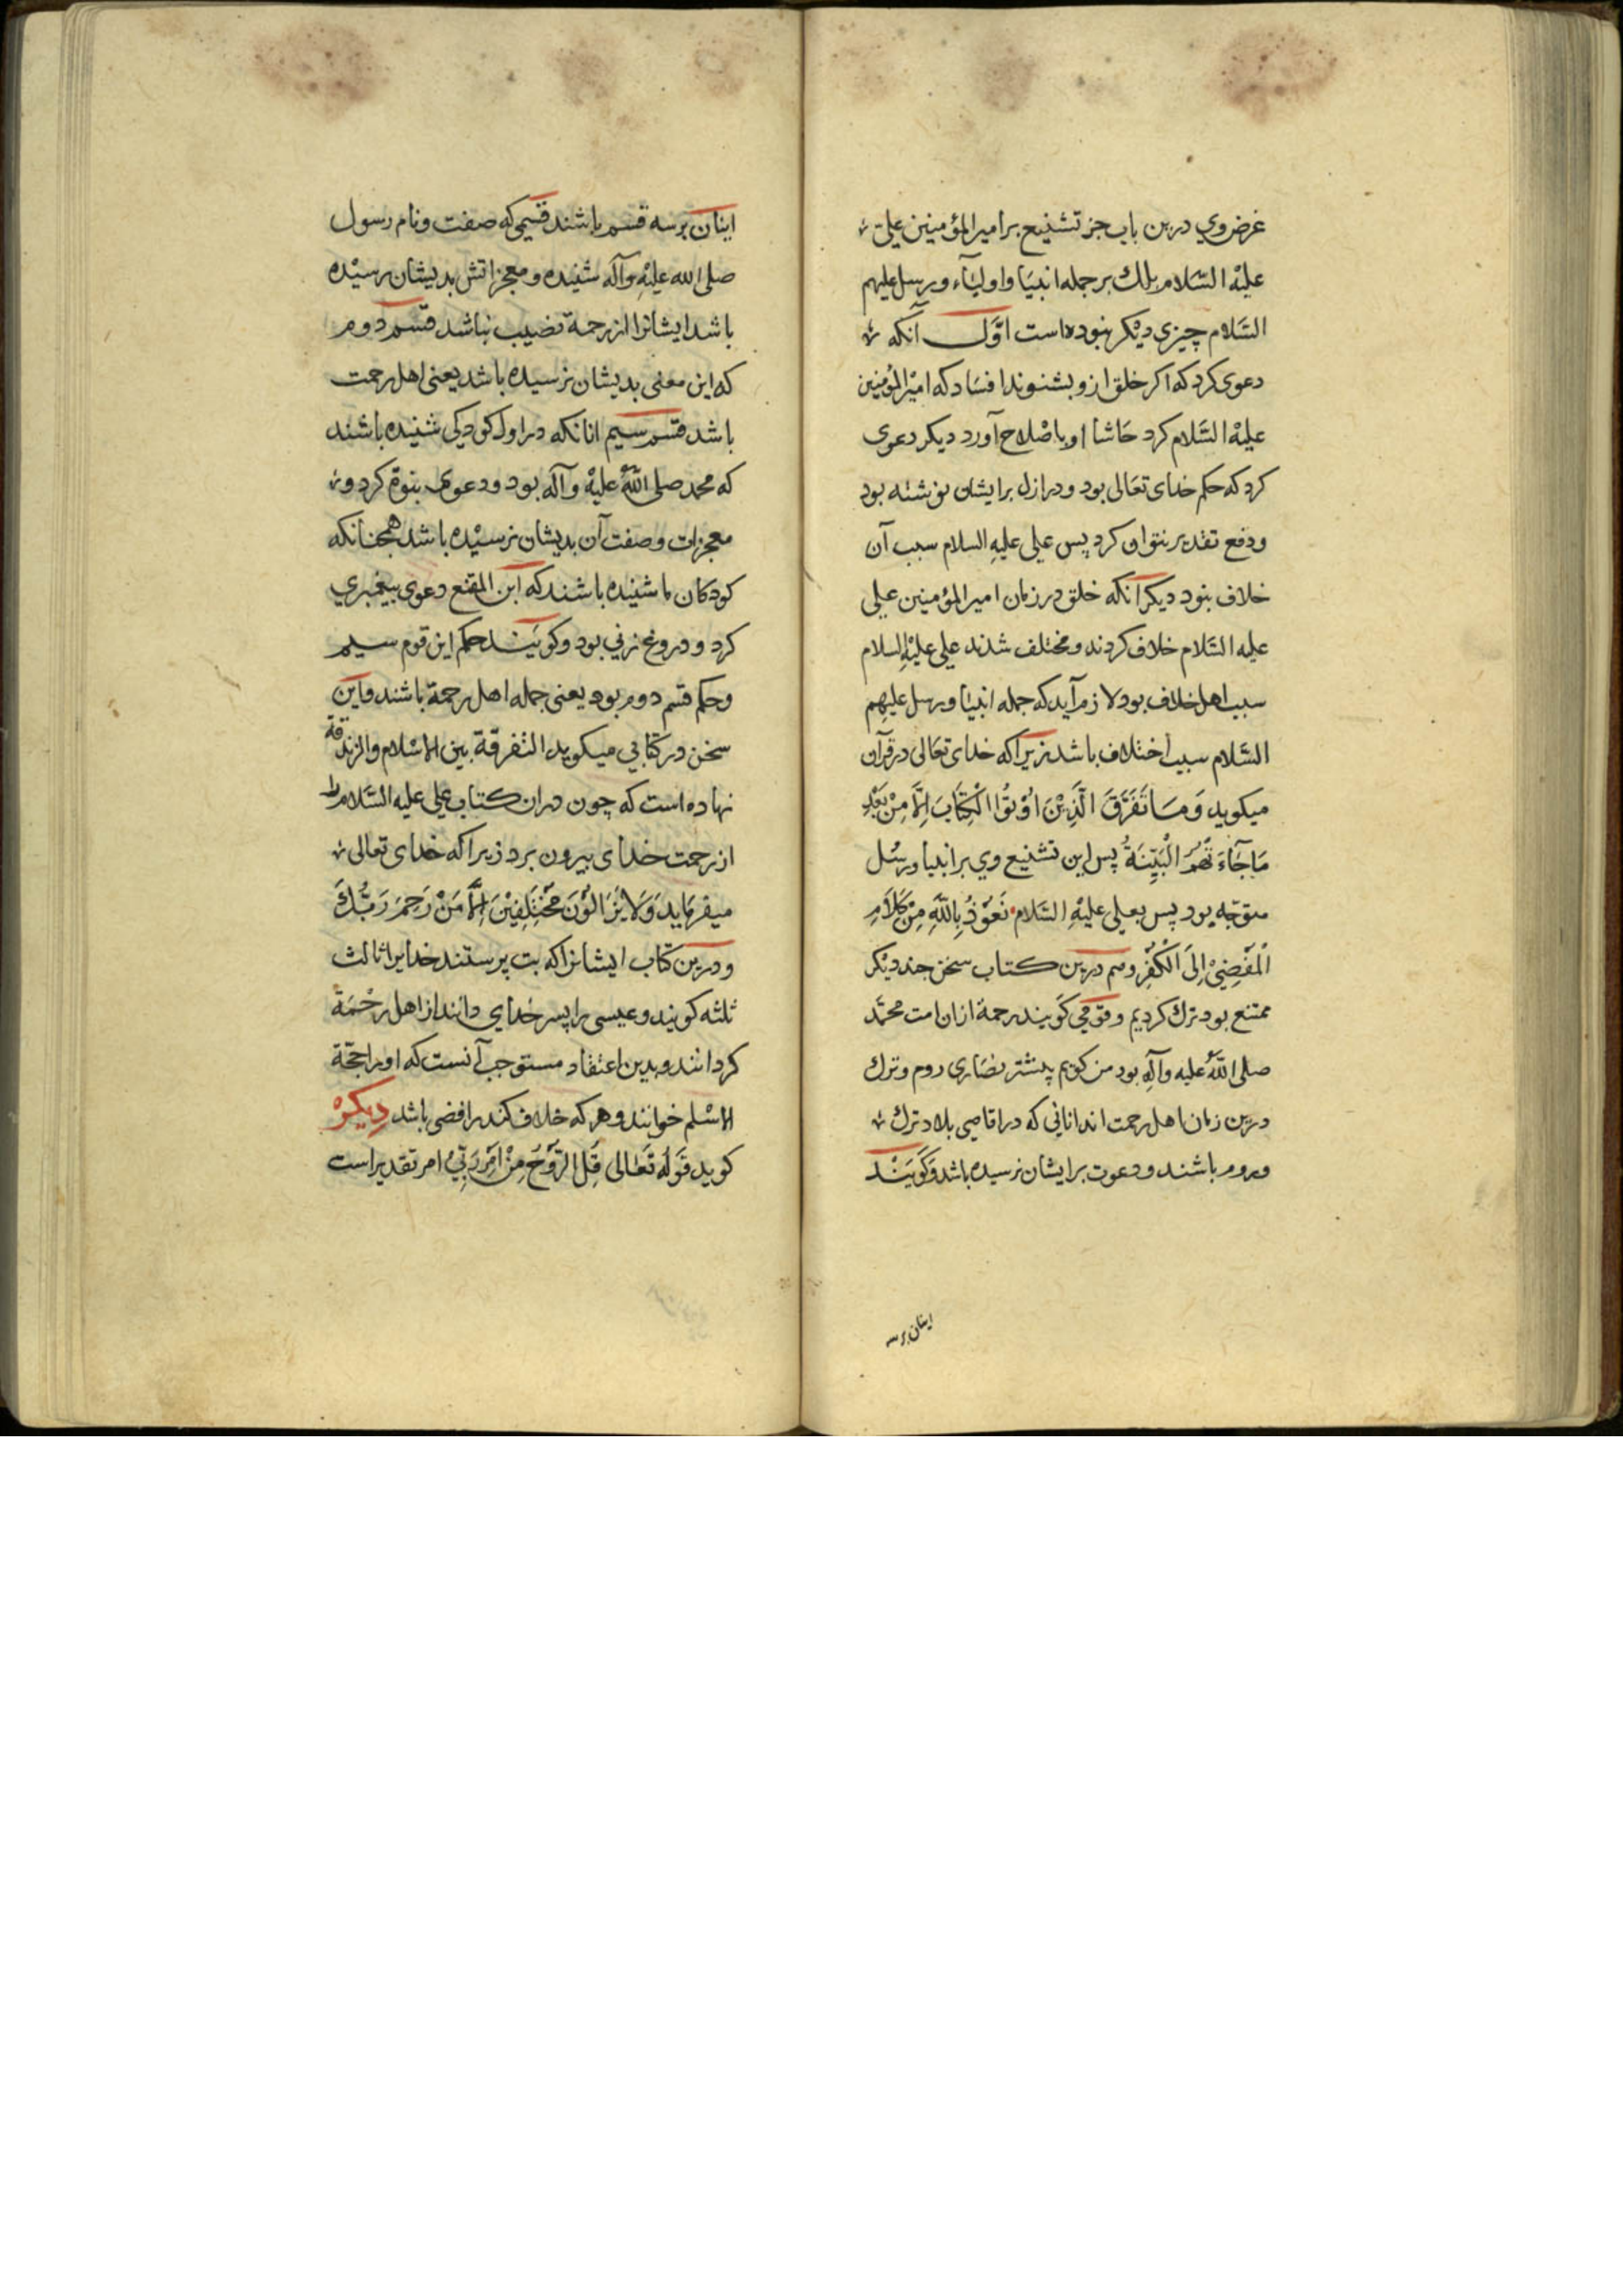 غرض وي درين باب جز تشنيع بر امير المؤمنين علي
عليْه السَّلام بلك بر جمله انبيَا واوليَآء ورسل عليهم
السَّلام چيزي ديْكر نبوده است اوَّل آنكه
دعوى كرد كه اكر خلق ازو بشنوند افسَاد كه اميْر المؤمنين
عليْه السَّلام كرد حَاشا او باصْلاح آورد ديكر دعوى
كرد كه حكم خداى تعَالى بود ودر ازل بر ايشان نوشته بود
ودفع تقدير نتوان كرد پس على عليهِ السلام سبب آن
خلاف نبود ديكر آنكه خلق در زمان امير المؤمنين على
عليه السَّلام خلاف كردند ومختلف شدند على عليْهِ السلام
سبب اهل خلاف بود لازم آيد كه جمله انبيَا ورسل عليهِم
السَّلام سبب اختلاف باشد زيراكه خداى تعَالى در قرآن
ميكويد وَمَا تَفَرَّقَ الَّذِيْنَ اُوْتُوُا الْكِتَابَ اِلَّا مِنْ بَعْدِ
مَا جَآءَ تْهُمُ الْبَيِّنَةُ پس اين تشنيع وي بر انبيا ورسُل
متوجّه بود پس بعلى عليْهِ السَّلام نَعُوْذُ بِاللّهِ مِنْ كَلَامِ
الْمُفْضِيْ اِلَى الْكُفْرِ وهم درين كتاب سخن جند ديْكر
ممتنع بود ترك كرديم وقومي كَويند رحمة از ان امت محمَّد
صلى اللّهُ عليه وآلهِ بود من كويم بيشتر نصَارى روم وترك
درين زمان اهل رحمت اند انانى كه در اقاصى بلاد ترك
وروم باشند ودعوت بر ايشان نرسيده باشد وَكَويَنْد
اينان بر سه
اينان بر سه قسم باشند قسمى كه صفت ونام رسول
صلى الله عليْهِ وآله شنيده ومعجزاتش بديشان رسيْده
باشد ايشانرا از رحمة نصيب نباشد قسم دوم
كه اين معنى بديشان نرسيده باشد يعنى اهل رحمت
باشد قسم سيم انانكه در اول كودكى شنيده باشند
كه محمد صلى اللّهُ عليْهِ وآله بود ودعوى نبوّة كرد و
معجزات وصفت آن بديشان نرسيْده باشد همجنانكه
كودكان ما شنيده باشند كه ابن المقنع دعوى بيغمبري
كرد ودروغ زني بود وكويَنْد حكم اين قوم سيم
وحكم قسم دوم بود يعنى جمله اهل رحمة باشند واين
سخن در كتابي ميكويد التفرقة بين الاسْلام والزندقة
نهاده است كه چون در ان كتاب على عليه السَّلام را
از رحمت خداى بيرون برد زيراكه خداى تعالى
ميفرمَايد وَلَا يَزَالُوْنَ مُخْتَلِفِيْنَ اِلَّا مَنْ رَحِمَ رَبُّكَ
ودرين كتاب ايشانرا كه بت پرستند خدايرا ثالث
ثلثه كويند وعيسى را پسر خداي دانند از اهل رحْمَة
كردانند وبدين اعتقاد مستوجب آنست كه او را حجّة
الاسْلم خوانند وهر كه خلاف كند رافضى باشد دِيكرْ
كويد قَوْلُه تَعَالى قُلِ الرُّوْحُ مِنْ اَمْرِ رَبِّيْ امر تقدير است